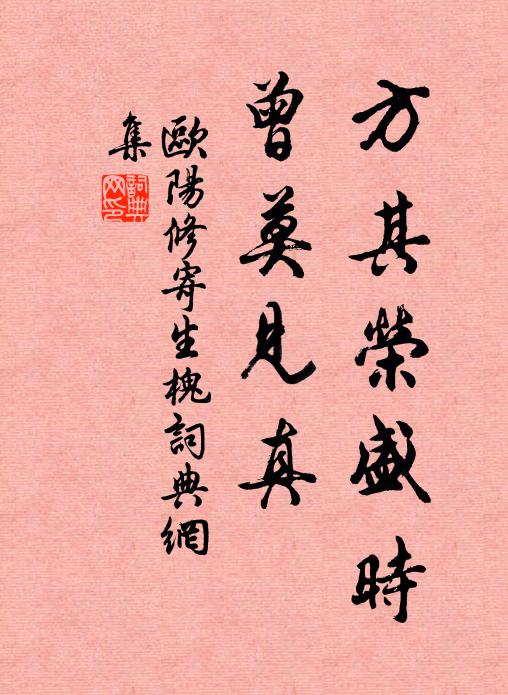 方其榮盛時
曾莫見真
歐陽修寄生槐詞典網
集
詞典
网印